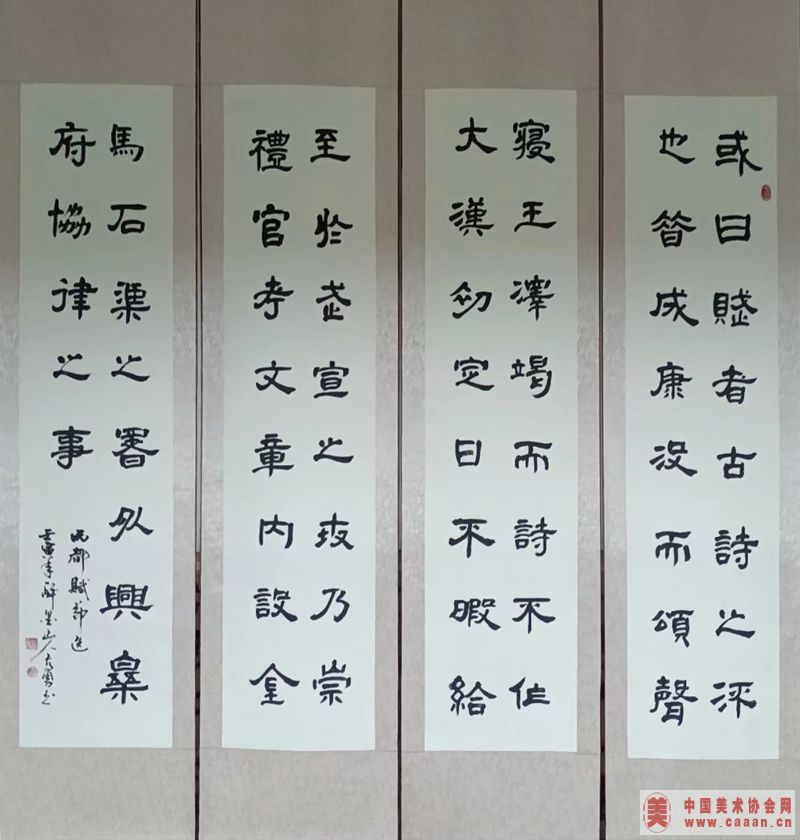 或曰賦者古詩之流
也昔成康没而頌聲
寢王澤竭而詩不作
大漢初定日不暇給
至於武宣之世乃崇
禮官考文章内設金
馬石渠之署外興樂
府協律之事
都賦節選
壬寅年醉墨山人
美 中国美术协会网
www.caaan.cn